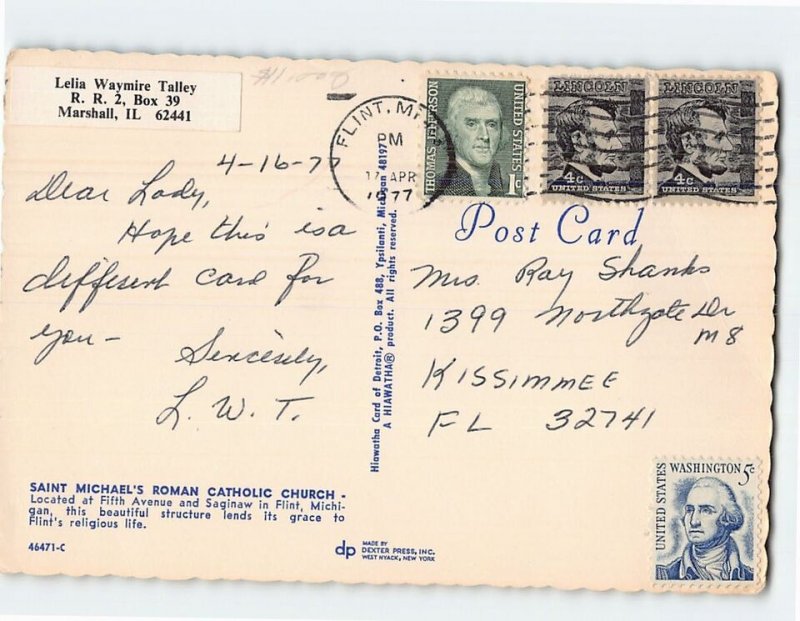 Lelia Waymire Talley
R. R. 2, Box 39
Marshall, IL 62441
4-16-77
Dear Lady,
Hope this is a
different card for
you -
Sincerely,
L. W. T.
SAINT MICHAEL'S ROMAN CATHOLIC CHURCH -
Located at Fifth Avenue and Saginaw in Flint, Michi-
gan, this beautiful structure lends its grace to
Flint's religious life.
46471-C
dp
MADE BY
DEXTER PRESS, INC.
WEST NYACK, NEW YORK
Hiawatha Card of Detroit, P.O. Box 488, Ypsilanti, Michigan 48197
A HIAWATHA® product. All rights reserved.
FLINT, MI
PM
17 APR
1977
THOMAS JEFFERSON
UNITED STATES
1c
LINCOLN
4c
UNITED STATES
LINCOLN
4c
UNITED STATES
Post Card
Mrs. Ray Shanks
1399 Northgate Dr
M8
KISSIMMEE
FL 32741
UNITED STATES
WASHINGTON 5c